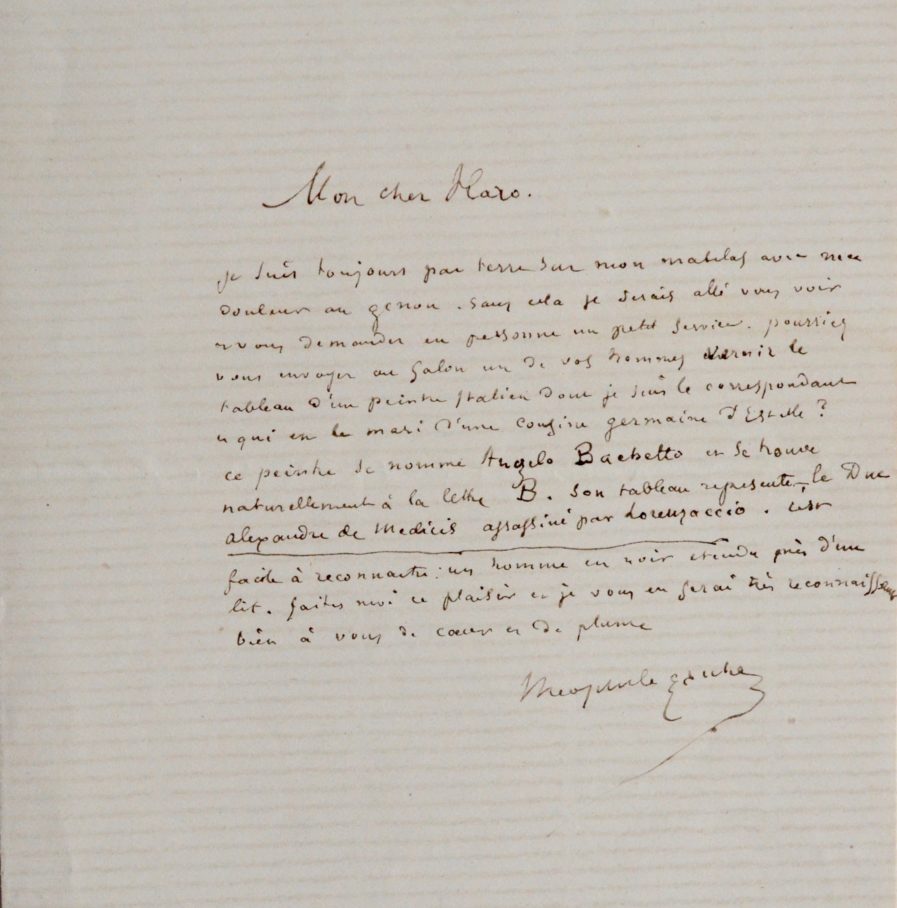 Mon cher Haro.
je suis toujours par terre sur mon matelas avec ma
douleur au genou. sans cela je serais allé vous voir
et vous demander en personne un petit service. pourriez
vous envoyer au Salon un de vos hommes vernir le
tableau d'un peintre Italien dont je suis le correspondant
et qui est le mari d'une cousine germaine d'Estelle?
ce peintre se nomme Angelo Bachetto et se trouve
naturellement à la lettre B. Son tableau représente, le Duc
alexandre de Medicis assassiné par Lorenzaccio. c'est
facile à reconnaitre: un homme en noir etendu près d'un
lit. faites moi ce plaisir et je vous en serai très reconnaissant
bien à vous de cœur et de plume
Theophile Gautier